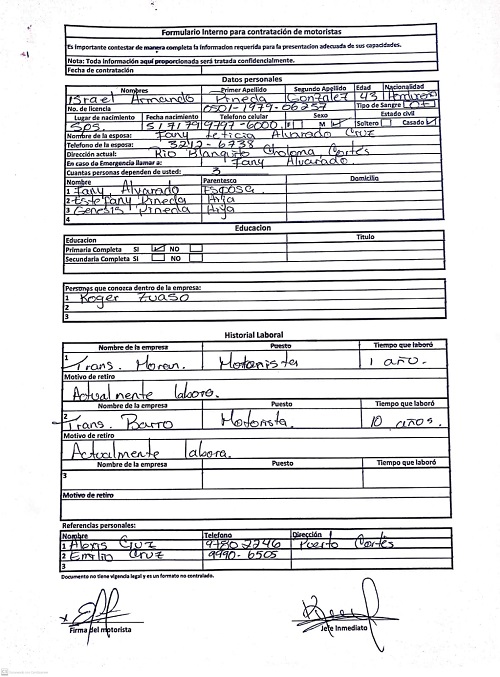 Formulario Interno para contratación de motoristas
Es importante contestar de manera completa la informacion requerida para la presentacion adecuada de sus capacidades.
Nota: Toda información aquí proporcionada será tratada confidencialmente.
Fecha de contratación
Datos personales
Nombres Primer Apellido Segundo Apellido Edad Nacionalidad
Israel Armando Pineda Gonzalez 43
No. de licencia 0501-1979-06257 Tipo de Sangre O+
Lugar de nacimiento Fecha nacimiento Telefono celular Sexo Estado civil
SPS. 5/1/79 9797-6000 M Soltero Casado
Nombre de la esposa: Fany Leticia Alvarado Cruz
Telefono de la esposa: 3242-6738
Dirección actual: Rio Blanquito Choloma Cortés
En caso de Emergencia llamar a: Fany Alvarado.
Cuantas personas dependen de usted: 3
Nombre Parentesco Domicilio
1 Fany Alvarado Esposa
2 Estefany Pineda Hija
3 Genesis Pineda Hija
4
Educacion
Educacion Titulo
Primaria Completa SI NO
Secundaria Completa SI NO
Personas que conozca dentro de la empresa:
1 Roger
2
3
Historial Laboral
Nombre de la empresa Puesto Tiempo que laboró
1 Trans. Moran. Motorista 1 año.
Motivo de retiro
Actualmente labora.
Nombre de la empresa Puesto Tiempo que laboró
2 Trans. Barro Motorista. 10 años.
Motivo de retiro
Actualmente labora.
Nombre de la empresa Puesto Tiempo que laboró
3
Motivo de retiro
Referencias personales:
Nombre Telefono Dirección
1 Alexis Cruz 9780 2246 Puerto Cortés
2 Emilio Cruz 9990-6505
3
Documento no tiene vigencia legal y es un formato no controlado.
Firma del motorista Jefe Inmediato